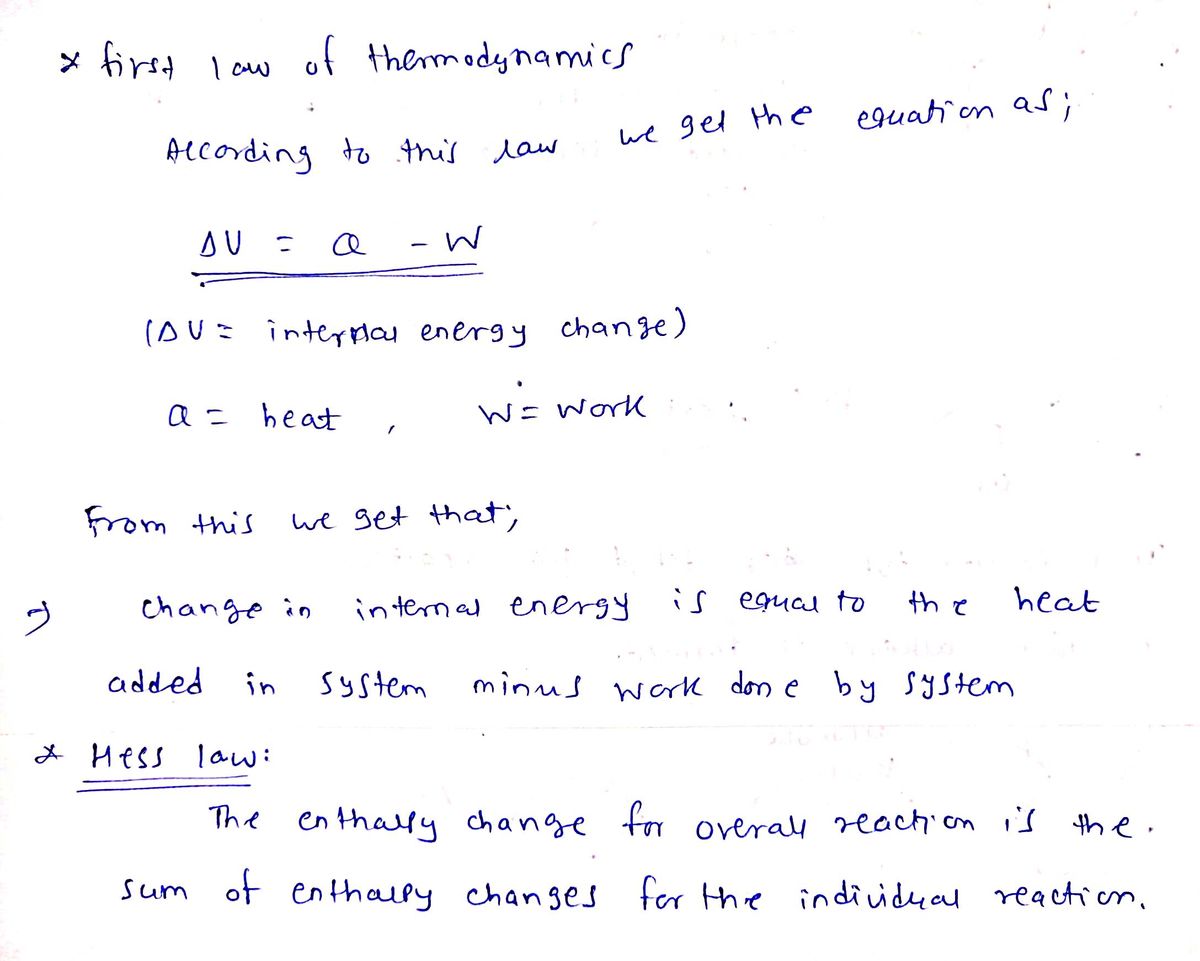 * first law of thermodynamics
According to this law we get the equation as;
ΔU = Q - W
(ΔU = internal energy change)
Q = heat , W = Work
From this we get that;
⇒ change in internal energy is equal to the heat
added in system minus work done by system
* Hess law:
The enthalpy change for overall reaction is the.
sum of enthalpy changes for the individual reaction.